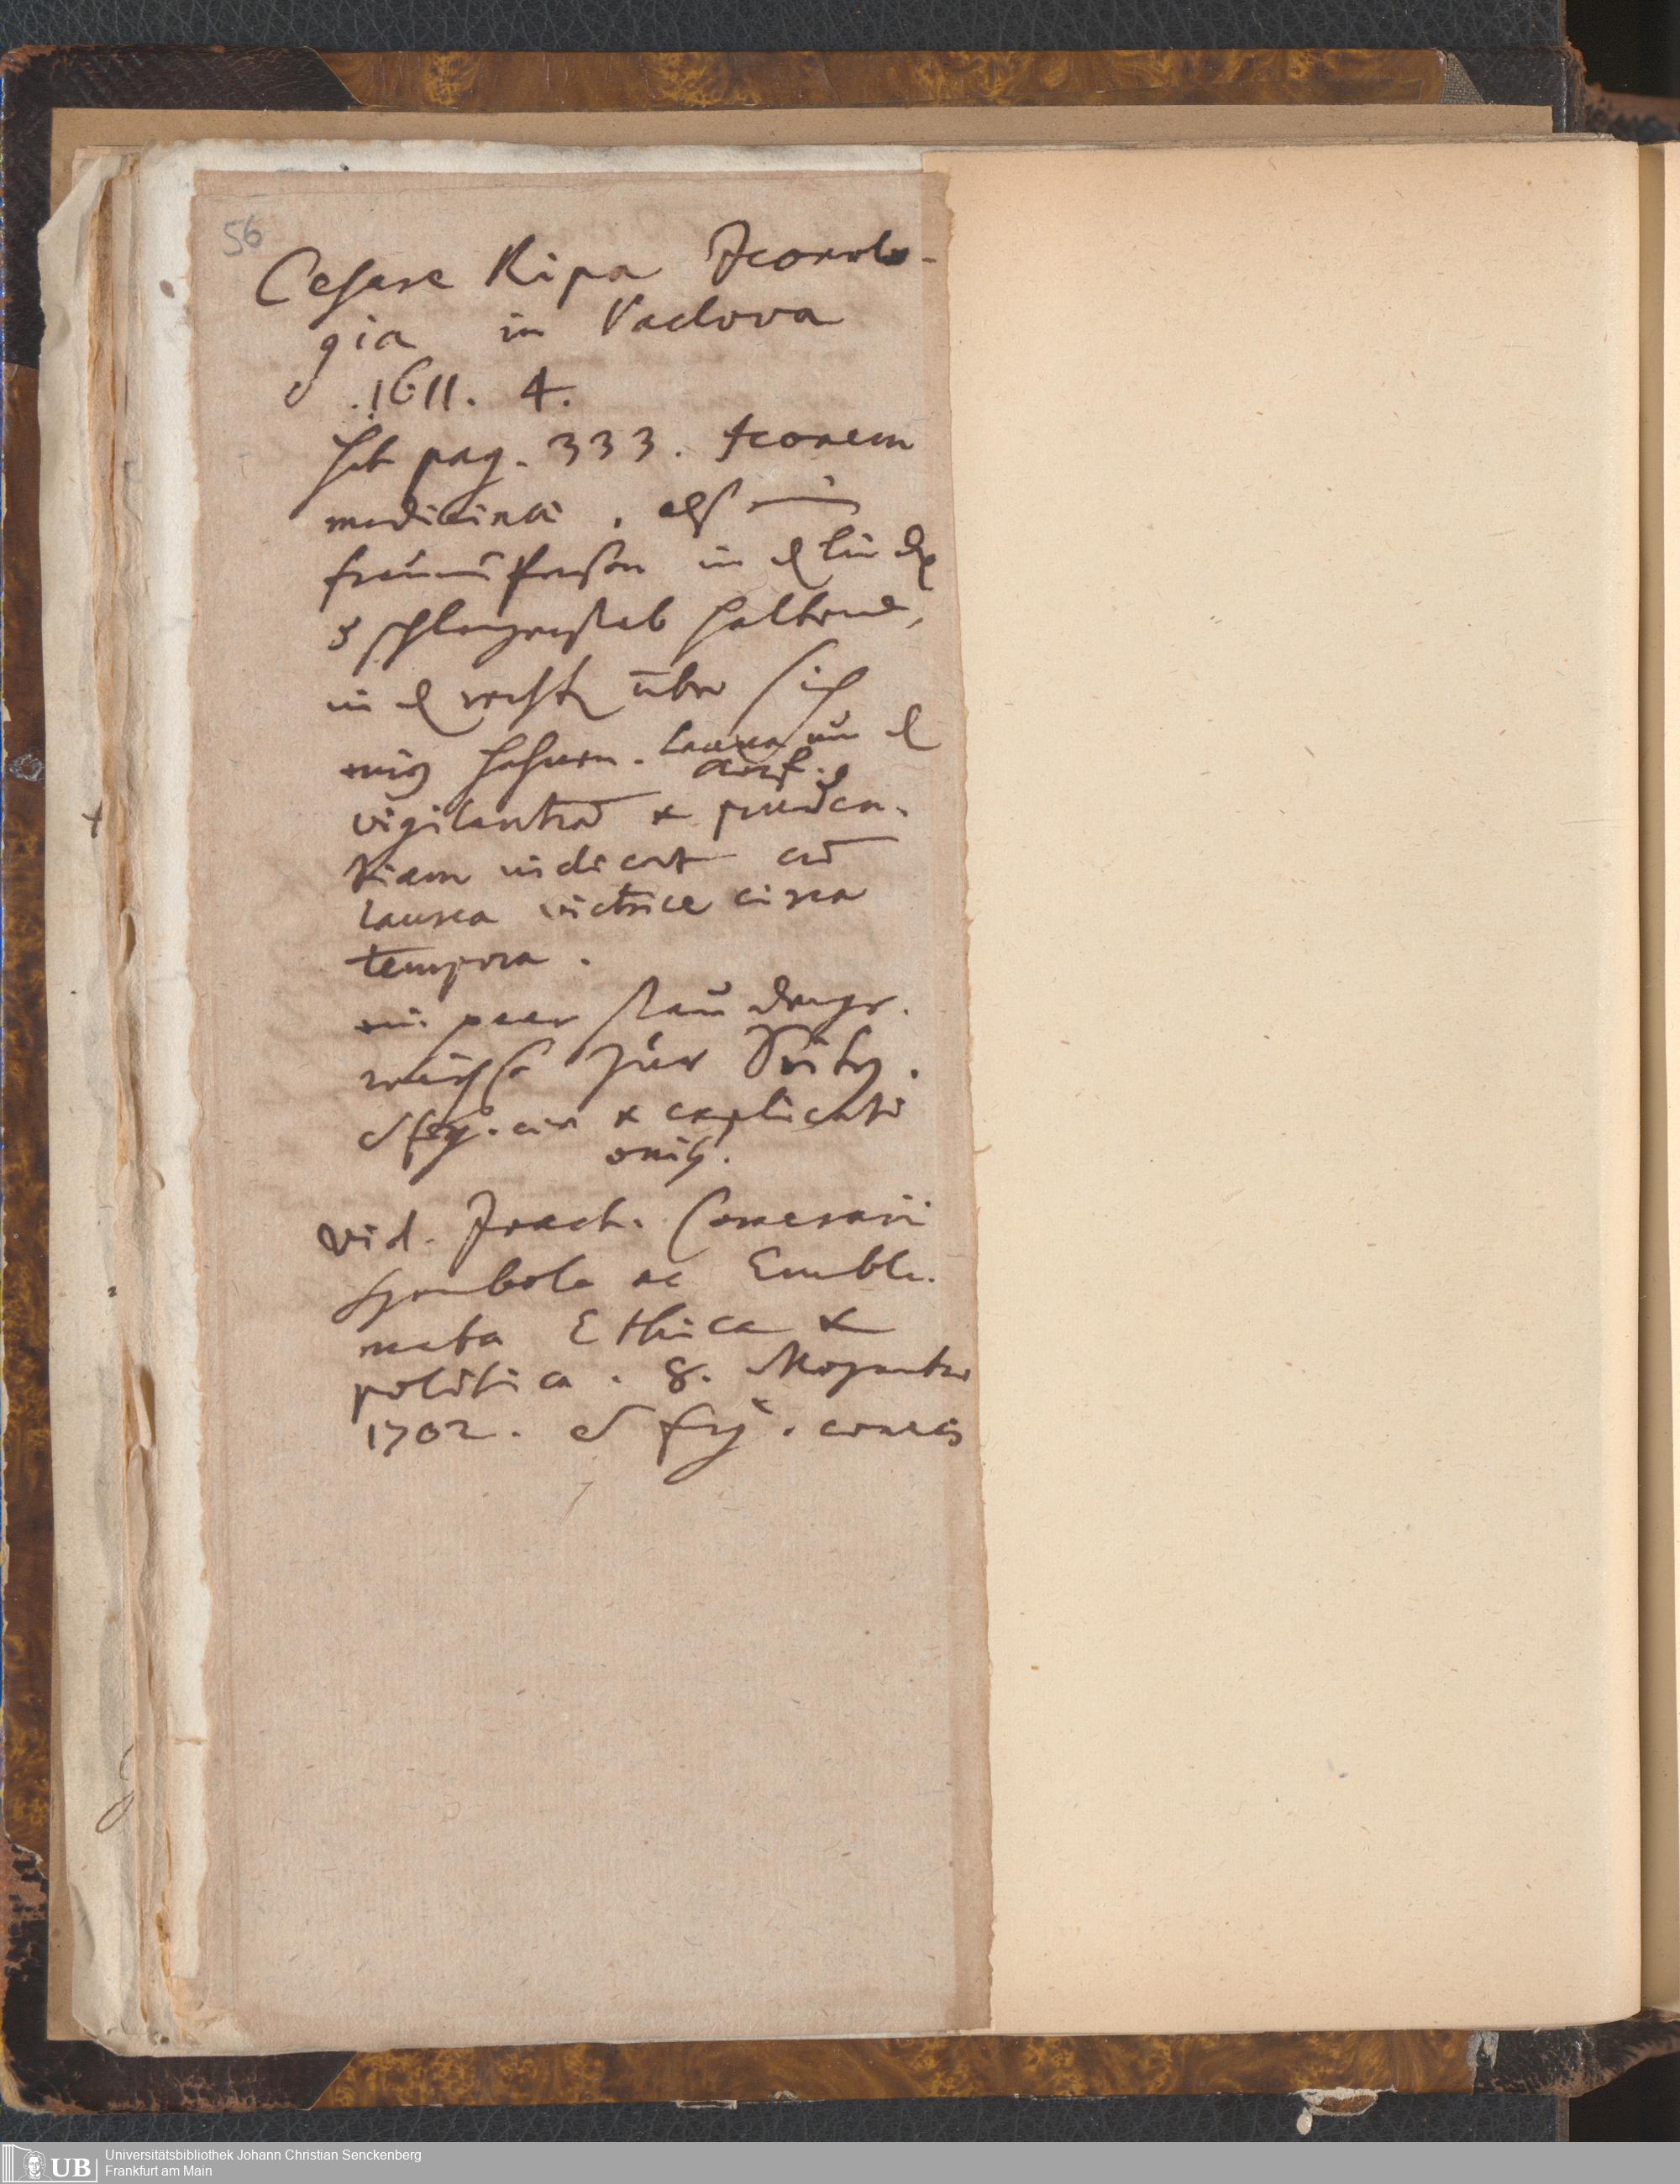 56
Cesare Ripa Iconolo-
gia in Padova
1611. 4.
hat pag. 333. Iconem
medicinae, alß ein
frauen Person in d lin
schlangenstab haltend,
in d rechten über sich
einen hahnen. laurea um d
vigilantiam & pruden-
tiam indicat cum
laurea victrice circa
tempora.
ein paar stauden
zur Seiten.
c fig. & explicati
onib.
vid. Joach. Camerarii
Symbola ac Emble-
mata Ethica &
politica. 8. Moguntiae
1702. c fig.
UB Universitätsbibliothek Johann Christian Senckenberg
Frankfurt am Main